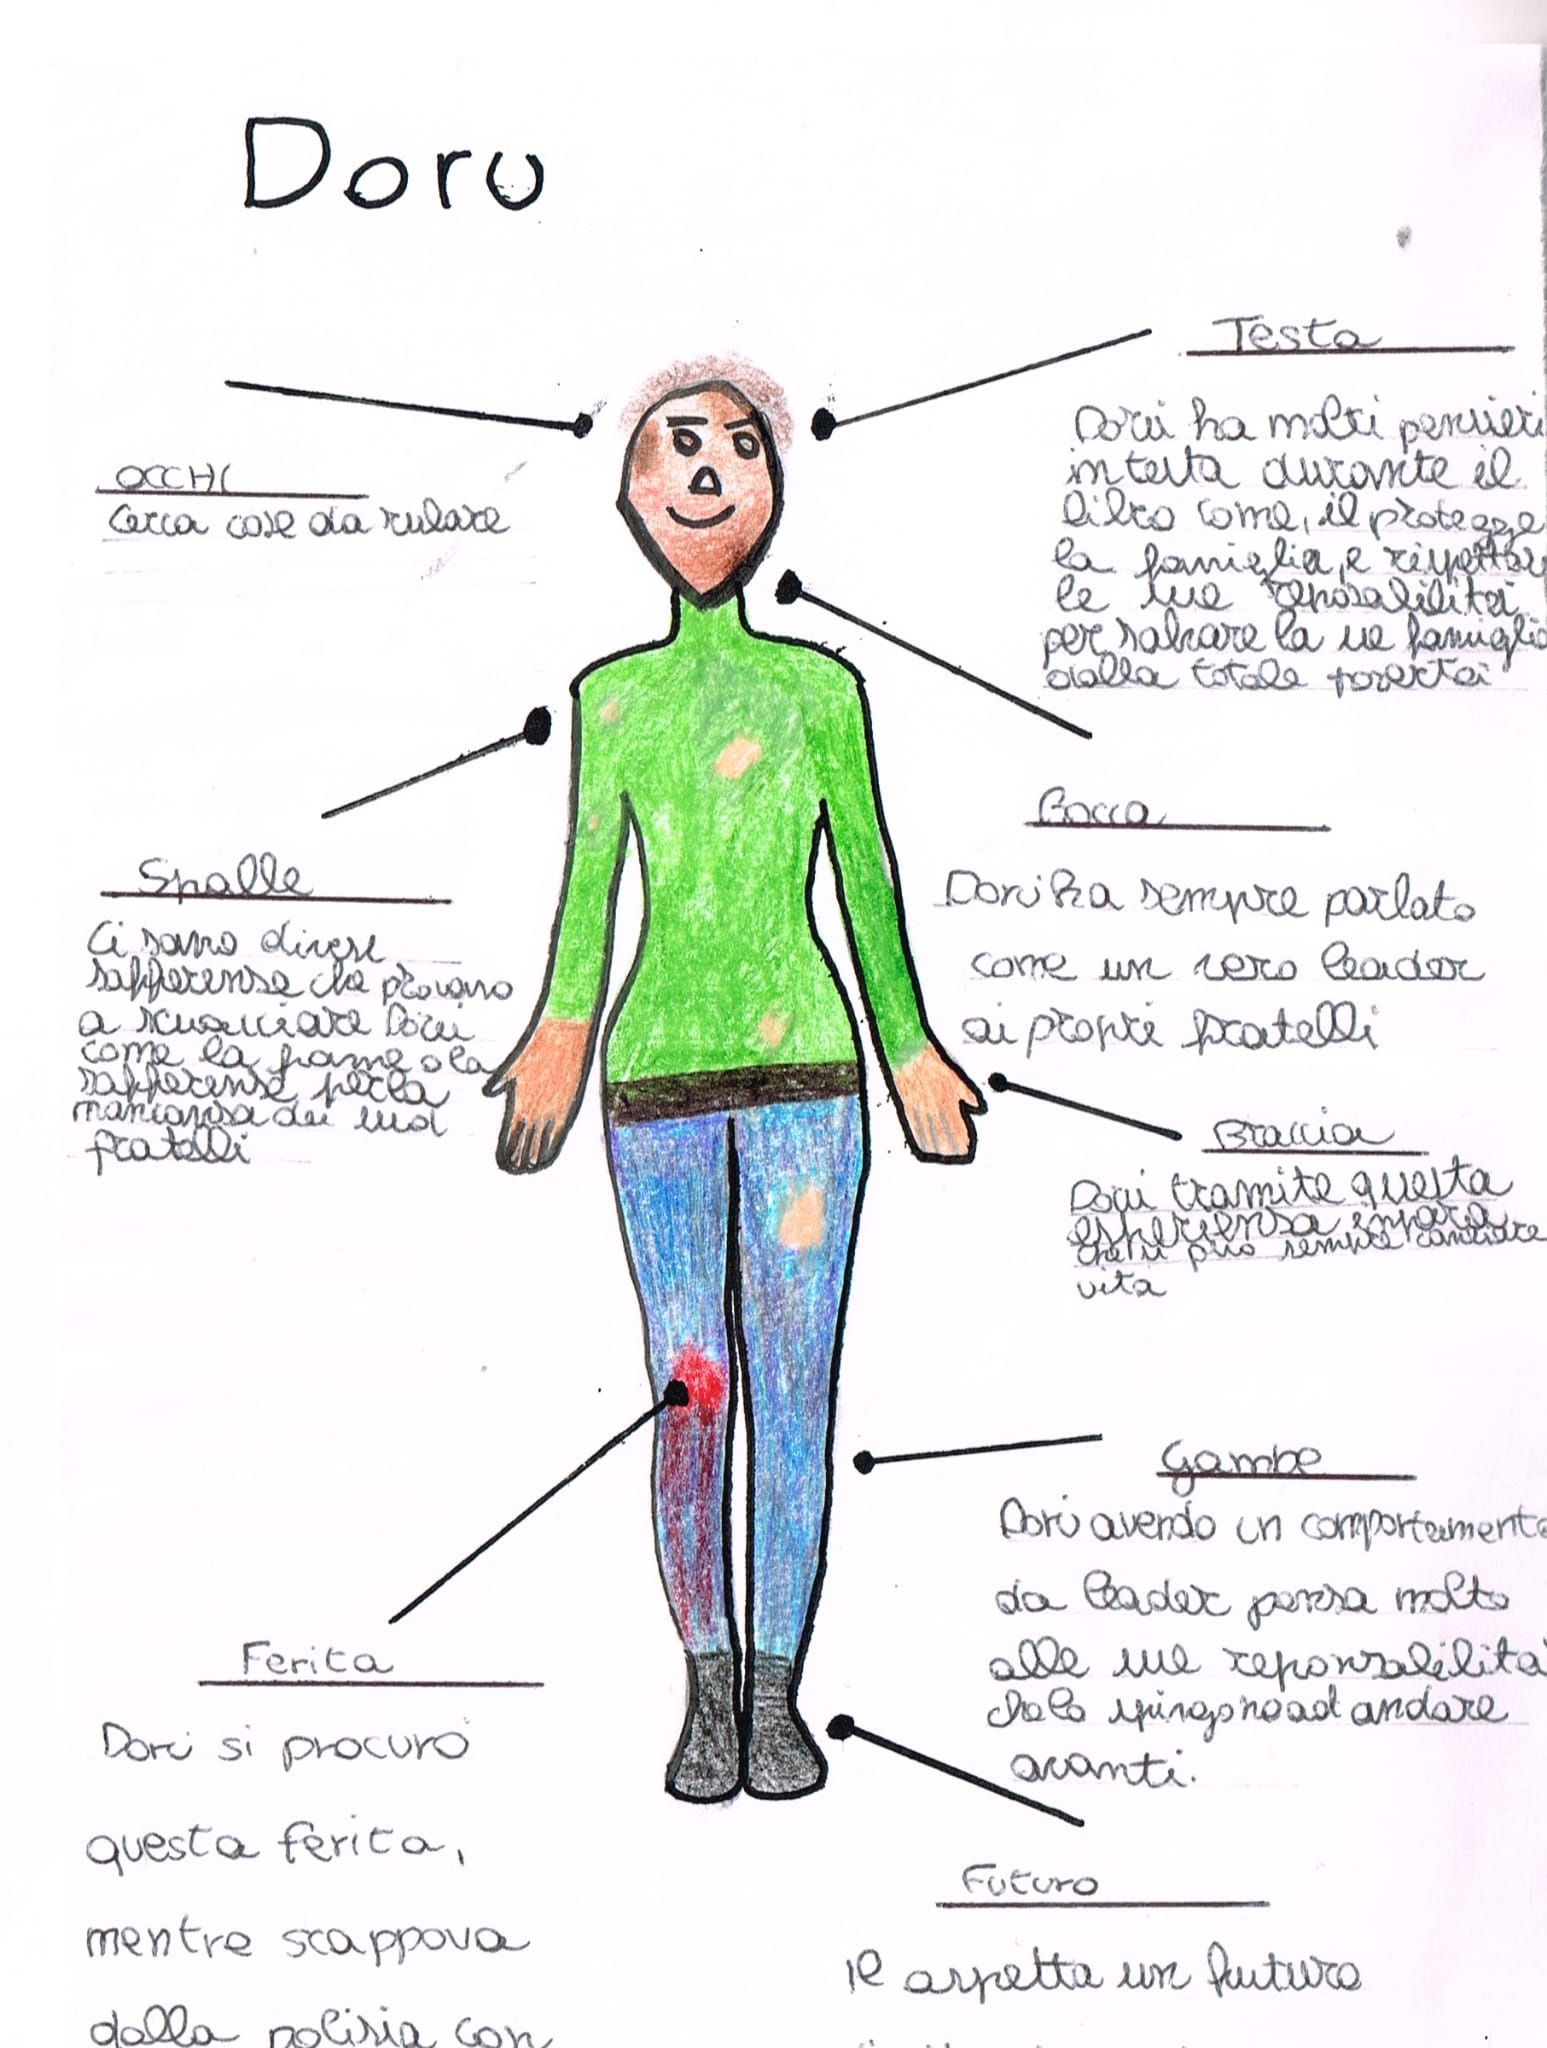 Doru
OCCHI
Cerca cose da rubare
Testa
Doru ha molti pensieri
in testa durante il
libro come, il protegge
la famiglia, e rispettar
le sue
per salvare la se famiglia
dalla totale povertà
Spalle
Ci sono diverse
sofferenza che provano
a scuacciare Doru
come la fame o la
sofferenza per la
mancanza dei suoi
fratelli
Bocca
Doru ha sempre parlato
come un vero leader
ai propri fratelli
Braccia
Doru tramite questa
esperienza impara
che si può sempre cambiare
vita
Ferita
Doru si procurò
questa ferita,
mentre scappava
dalla polizia con
Gambe
Doru avendo un comportamento
da leader pensa molto
alle sue reponsabilità
che lo spingono ad andare
avanti.
Futuro
le aspetta un futuro